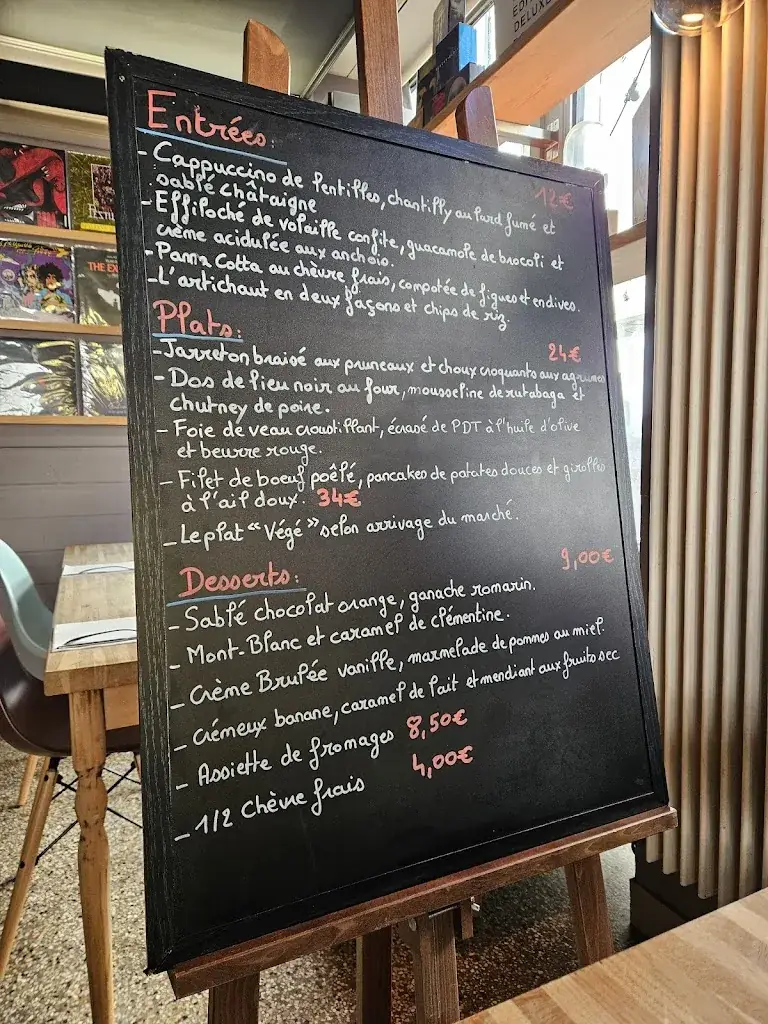 EDI
DELUXE
THE EX
Entrées:
12€
- Cappuccino de lentilles, chantilly au lard fumé et
sablé châtaigne
- Effiloché de volaille confite, guacamole de brocoli et
crème acidulée aux anchois.
- Panna Cotta au chèvre frais, compotée de figues et endives.
- L'artichaut en deux façons et chips de riz.
Plats:
24€
- Jarreton braisé aux pruneaux et choux croquants aux agrumes
- Dos de lieu noir au four, mousseline de rutabaga et
chutney de poire.
- Foie de veau croustillant, écrasé de PDT à l'huile d'olive
et beurre rouge.
- Filet de boeuf poêlé, pancakes de patates douces et girolles
à l'ail doux. 34€
- Le plat "Végé" selon arrivage du marché.
9,00€
Desserts:
- Sablé chocolat orange, ganache romarin.
- Mont-Blanc et caramel de clémentine.
- Crème Brulée vanille, marmelade de pommes au miel.
- Crémeux banane, caramel de lait et mendiant aux fruits sec
- Assiette de fromages 8,50€
- 1/2 Chèvre frais 4,00€